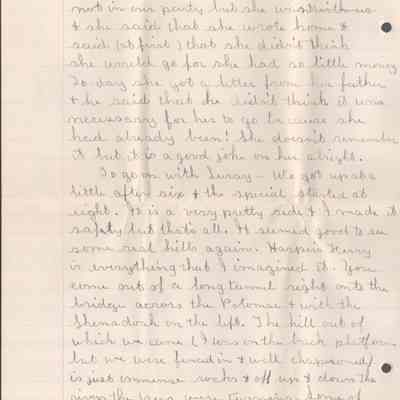 not in our party but she was with us
& she said that she wrote home &
said (at first) that she didn't think
she would go for she had so little money
To day she got a letter from her father
& he said that he didn't think it was
necessary for her to go because she
had already been! She doesn't remember
it but it is a good joke on her alright.
To go on with Luray - We got up at a
little after six & the special started at
eight. It is a very pretty ride & I made it
safely but that's all. It seemed good to see
some real hills again. Harpers Ferry
is everything that I imagined it. You
come out of a long tunnel right onto the
bridge across the Potomac & with the
Shenandoah on the left. The hill out of
which we came (I was on the back platform
but we were fenced in & well chaperoned)
is just immense rocks & off up & down the
river the trees were turning some of